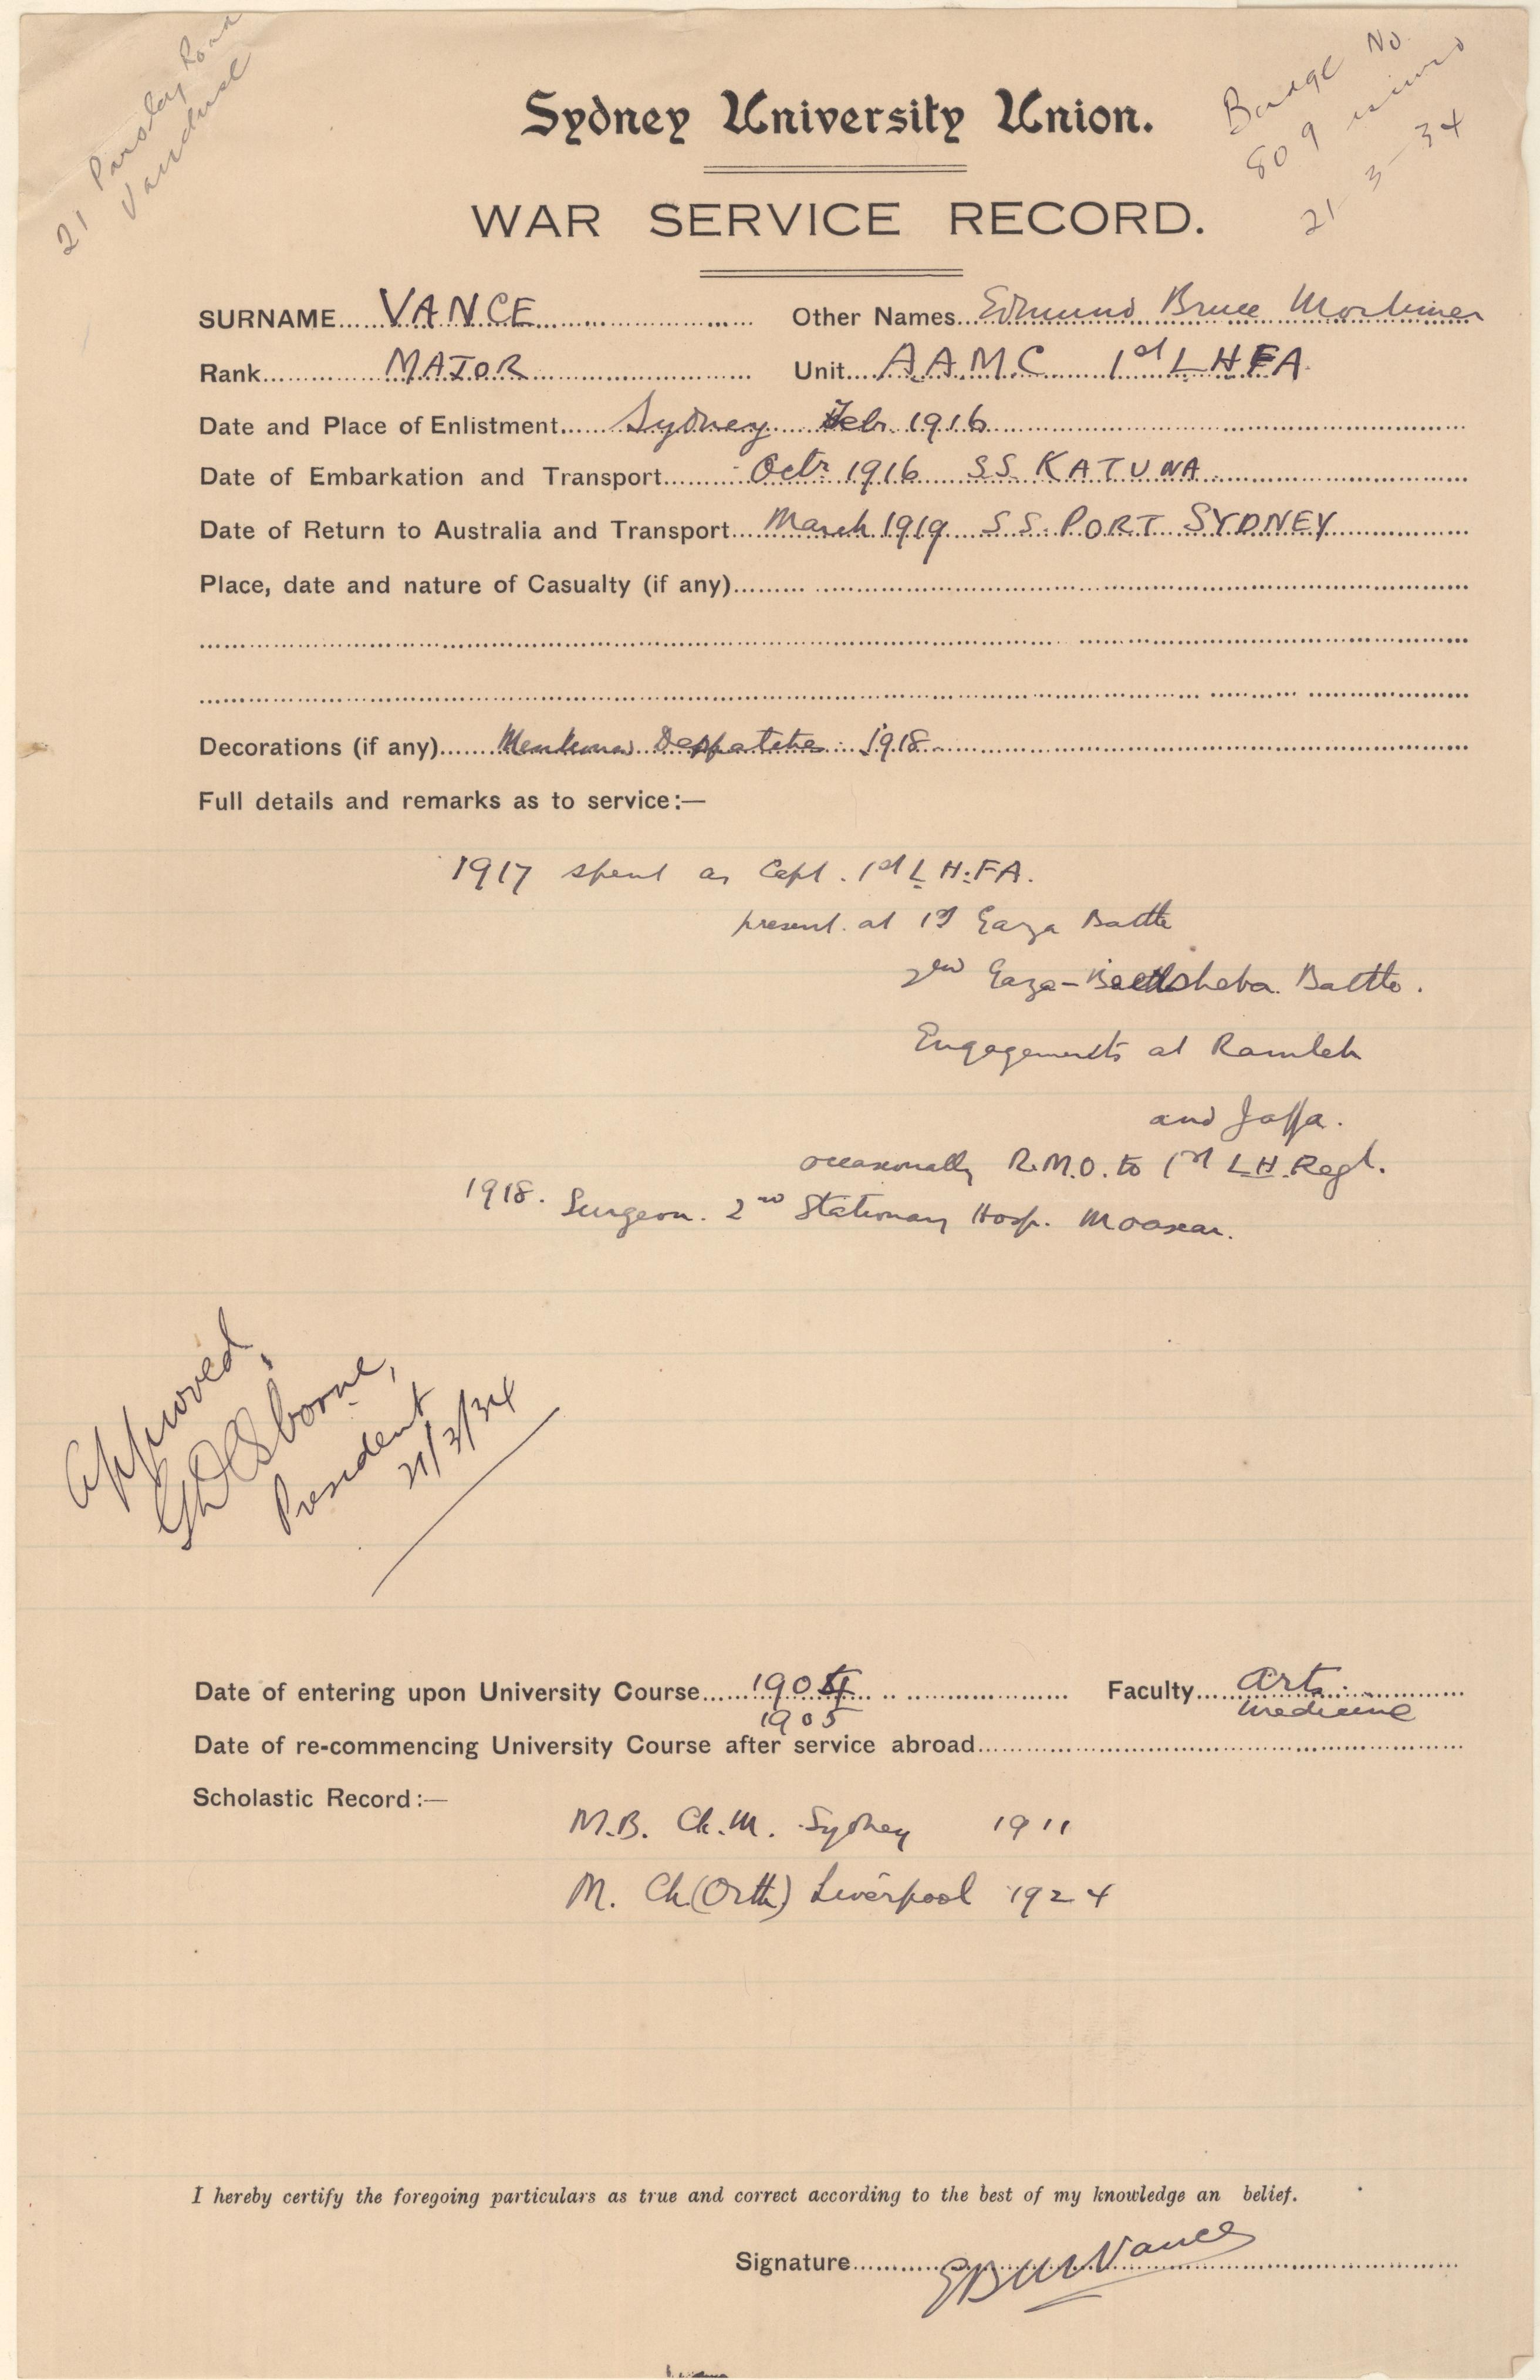 21 Parsley Road
Vaucluse
Badge No
809 issued
21-3-34
Sydney University Union.
WAR SERVICE RECORD.
SURNAME VANCE Other Names Edmund Bruce Mortimer
Rank MAJOR Unit AAMC 1st LHFA
Date and Place of Enlistment Sydney Feb. 1916
Date of Embarkation and Transport Octr 1916 SS KATUNA
Date of Return to Australia and Transport March 1919 S.S. PORT SYDNEY
Place, date and nature of Casualty (if any)
Decorations (if any) Mentioned Despatches 1918
Full details and remarks as to service:—
1917 spent as Capt. 1st L.H.FA.
present at 1st Gaza Battle
2nd Gaza-Beersheba Battle.
Engagements at Ramleh
and Jaffa.
occasionally R.M.O. to 1st L.H. Regt.
1918. Surgeon. 2nd Stationary Hosp. Moascar.
Approved,
GDOsborne,
President
21/3/34
Date of entering upon University Course 1904 Faculty Arts
1905 Medicine
Date of re-commencing University Course after service abroad
Scholastic Record:—
M.B. Ch.M. Sydney 1911
M. Ch(Orth) Liverpool 1924
I hereby certify the foregoing particulars as true and correct according to the best of my knowledge an belief.
Signature EBMVance